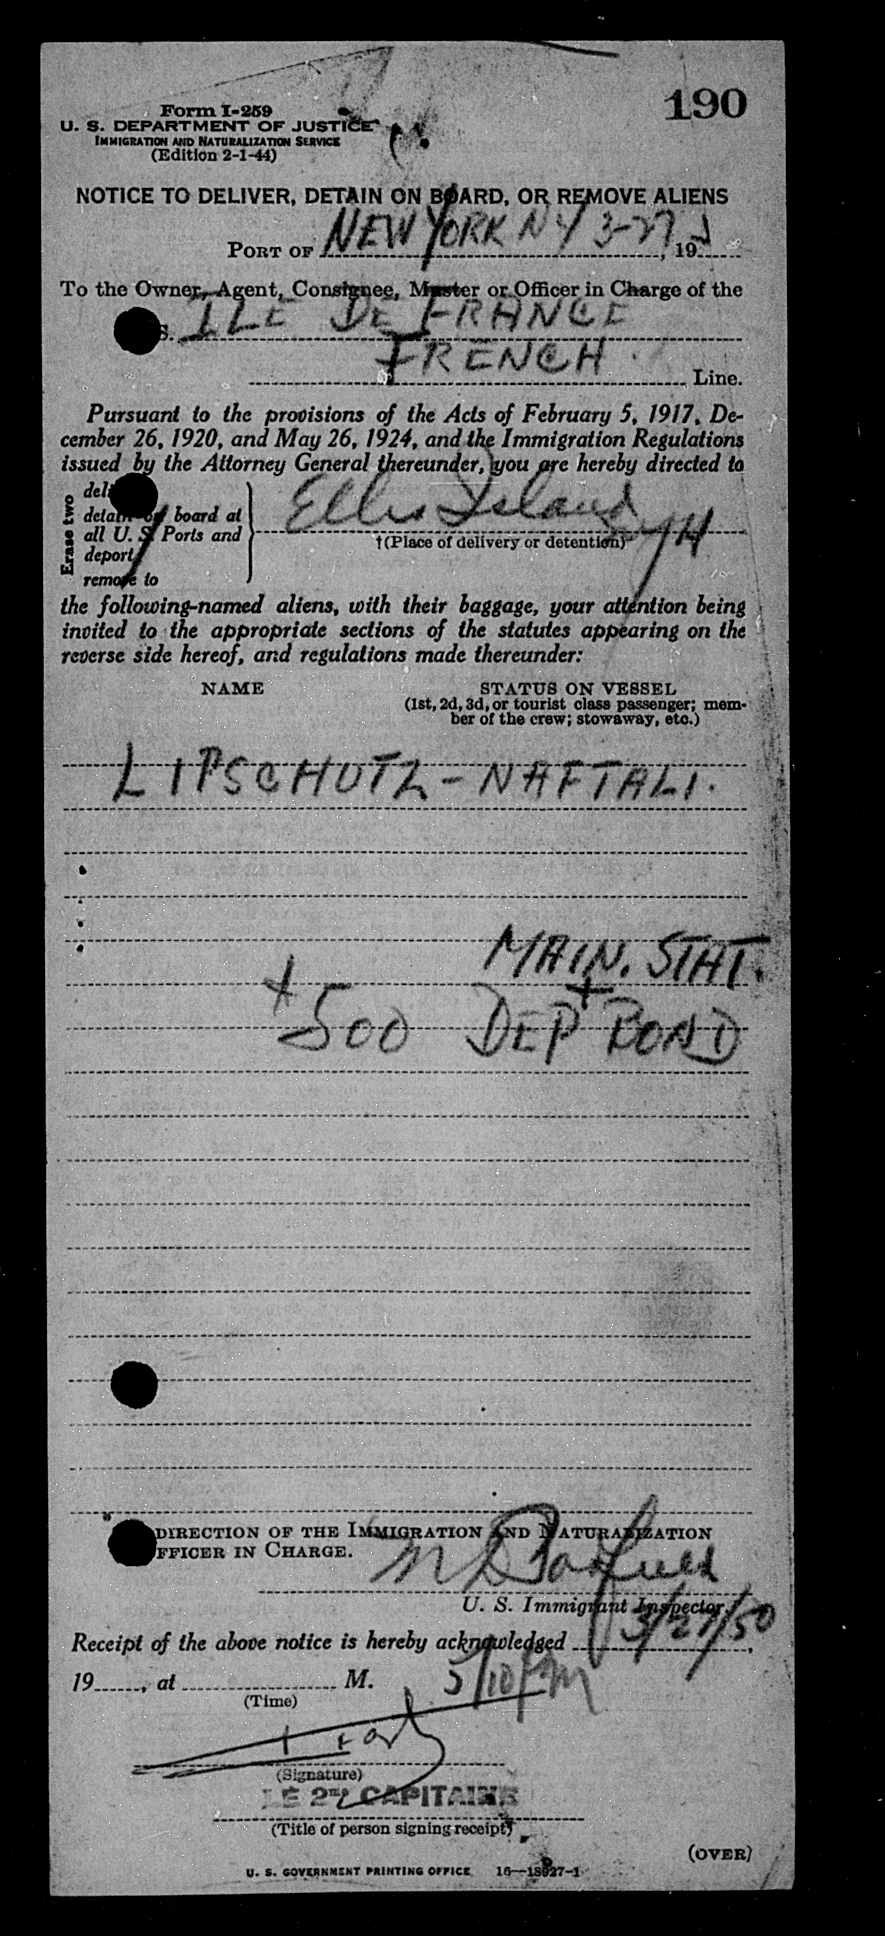 190
Form I-259
U. S. DEPARTMENT OF JUSTICE
IMMIGRATION AND NATURALIZATION SERVICE
(Edition 2-1-44)
NOTICE TO DELIVER, DETAIN ON BOARD, OR REMOVE ALIENS
PORT OF NEW YORK NY 3-27, 19
To the Owner, Agent, Consignee, Master or Officer in Charge of the
S. ILE DE FRANCE
FRENCH Line.
Pursuant to the provisions of the Acts of February 5, 1917, De-
cember 26, 1920, and May 26, 1924, and the Immigration Regulations
issued by the Attorney General thereunder, you are hereby directed to
Erase two
deli
detain on board at
all U. S. Ports and
deport
remove to
Ellis Island
†(Place of delivery or detention)
the following-named aliens, with their baggage, your attention being
invited to the appropriate sections of the statutes appearing on the
reverse side hereof, and regulations made thereunder:
NAME STATUS ON VESSEL
(1st, 2d, 3d, or tourist class passenger; mem-
ber of the crew; stowaway, etc.)
LIPSCHUTZ - NAFTALI.
MAIN. STAT.
+
500 DEP BOND
DIRECTION OF THE IMMIGRATION AND NATURALIZATION
FFICER IN CHARGE.
U. S. Immigrant Inspector.
3/27/50
Receipt of the above notice is hereby acknowledged
19, at M.
(Time)
(Signature)
LE 2ME CAPITAINE
(Title of person signing receipt)
(OVER)
U. S. GOVERNMENT PRINTING OFFICE 16—18927-1